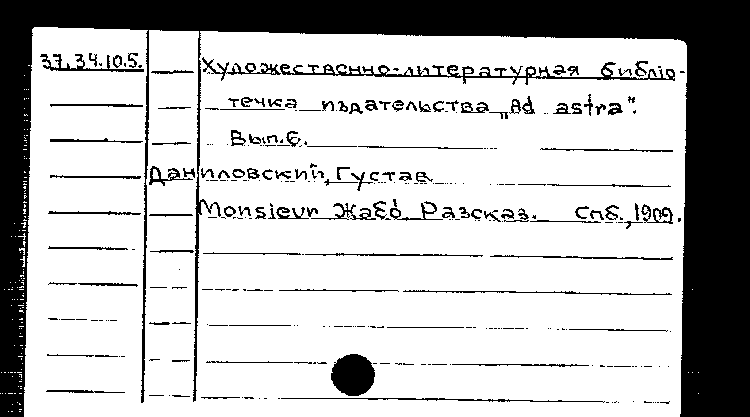 37.34.10.5. Художественно-литературная библіо-
течка издательства „Ad astra".
Вып.6.
Даниловский, Густав
Monsieur Жабо. Разсказ. Спб., 1909.